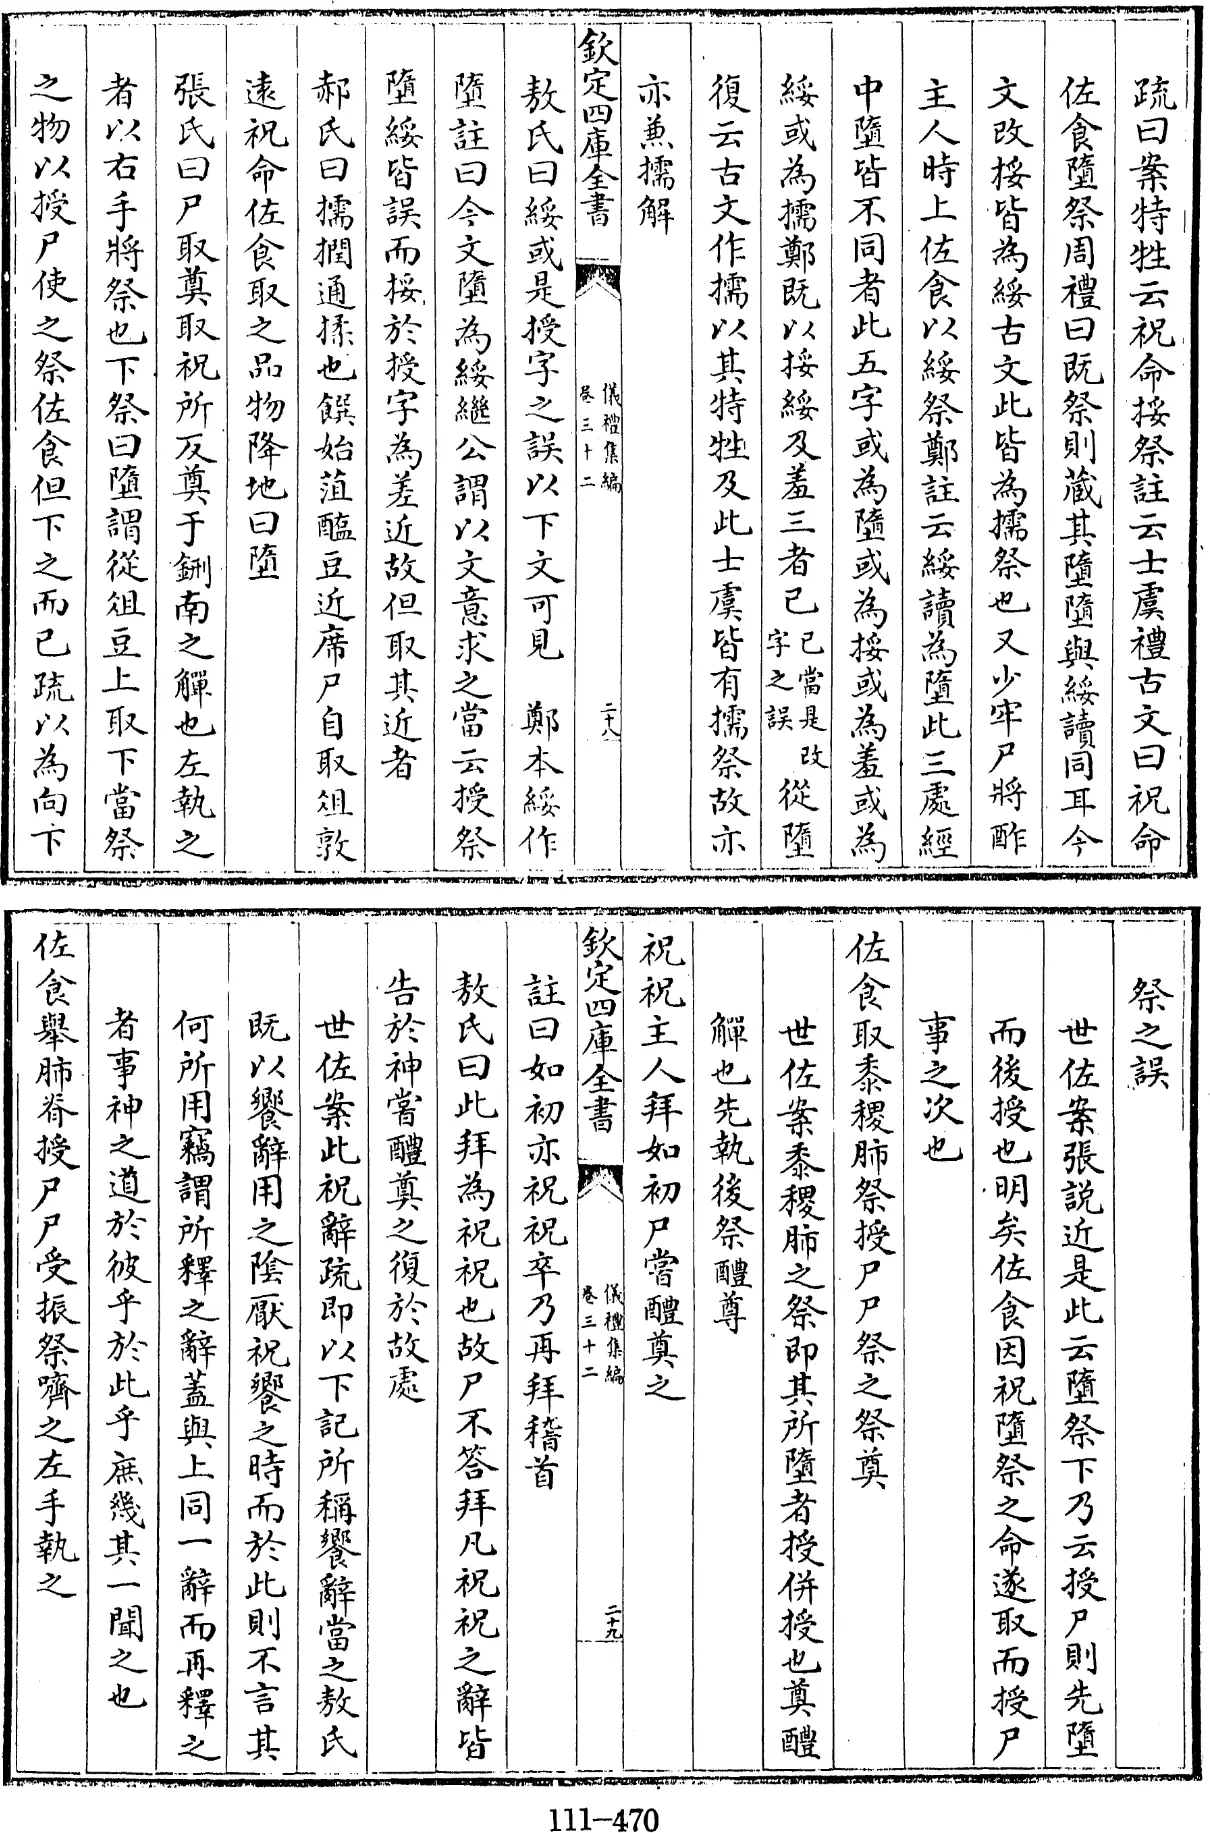 疏曰案特牲云祝命挼祭註云士虞禮古文曰祝命
佐食墮祭周禮曰既祭則蔵其墮墮與綏讀同耳今
文改挼皆為綏古文此皆為擩祭也又少牢尸將酢
主人時上佐食以綏祭鄭註云綏讀為墮此三處經
中墮皆不同者此五字或為墮或為挼或為羞或為
綏或為擩鄭既以挼綏及羞三者已
已當是改
字之誤
從墮
復云古文作擩以其特牲及此士虞皆有擩祭故亦
亦兼擩解
欽定四庫全書
儀禮集編
卷三十二
二十八
敖氏曰綏或是授字之誤以下文可見 鄭本綏作
墮註曰今文墮為綏繼公謂以文意求之當云授祭
墮綏皆誤而挼於授字為差近故但取其近者
郝氏曰擩撋通揉也饌始菹醢豆近席尸自取俎敦
遠祝命佐食取之品物降地曰墮
張氏曰尸取奠取祝所反奠于鉶南之觶也左執之
者以右手將祭也下祭曰墮謂從俎豆上取下當祭
之物以授尸使之祭佐食但下之而已疏以為向下
祭之誤
世佐案張説近是此云墮祭下乃云授尸則先墮
而後授也明矣佐食因祝墮祭之命遂取而授尸
事之次也
佐食取黍稷肺祭授尸尸祭之祭奠
世佐案黍稷肺之祭即其所墮者授併授也奠醴
觶也先執後祭醴尊
祝祝主人拜如初尸嘗醴奠之
欽定四庫全書
儀禮集編
卷三十二
二十九
註曰如初亦祝祝卒乃再拜稽首
敖氏曰此拜為祝祝也故尸不答拜凡祝祝之辭皆
告於神嘗醴奠之復於故處
世佐案此祝辭疏即以下記所稱饗辭當之敖氏
既以饗辭用之陰厭祝饗之時而於此則不言其
何所用竊謂所釋之辭蓋與上同一辭而再釋之
者事神之道於彼乎於此乎庶幾其一聞之也
佐食舉肺脊授尸尸受振祭嚌之左手執之
111-470